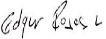 Edgar Rojas L